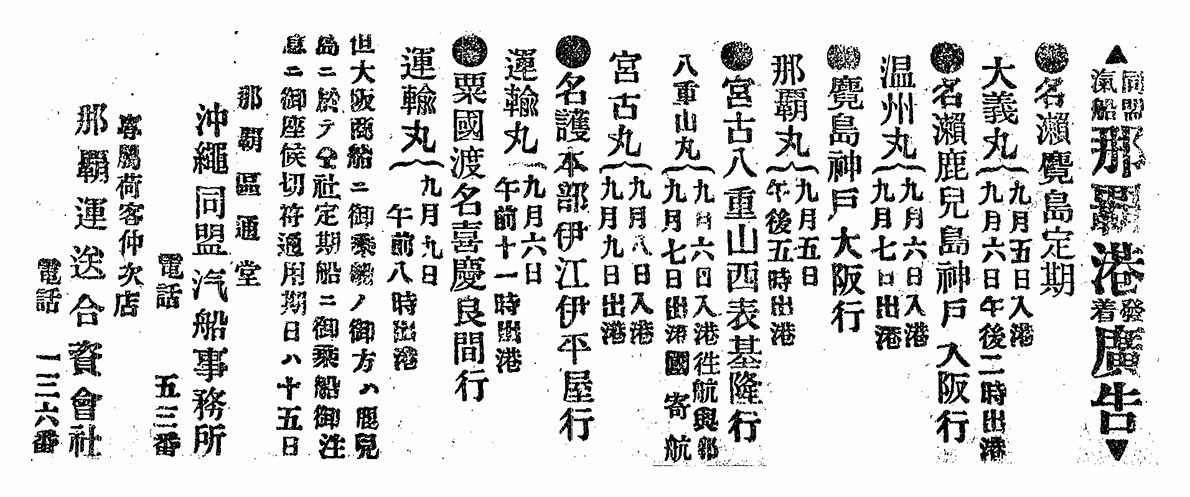 ▲同盟汽船那覇港發着廣告▼
●名瀬鹿兒島定期
大義丸(九月五日入港
九月六日午後二時出港
●名瀬鹿兒島神戸大阪行
温州丸(九月六日入港
九月七日出港
●鹿兒島神戸大阪行
那覇丸(九月五日
午後五時出港
●宮古八重山西表基隆行
八重山丸(九月六日入港徃航與那
九月七日出港國寄航
宮古丸(九月八日入港
九月九日出港
●名護本部伊江伊平屋行
運輸丸(九月六日
午前十一時出港
●粟國渡名喜慶良間行
運輸丸(九月九日
午前八時出港
但大阪商船ニ御乘船ノ御方ハ鹿兒
島ニ於テ仝社定期船ニ御乘船御注
意ニ御座候切符通用期日ハ十五日
那覇區通堂
沖繩同盟汽船事務所
電話 五三番
專屬荷客仲次店
那覇運送合資會社
電話 一三六番